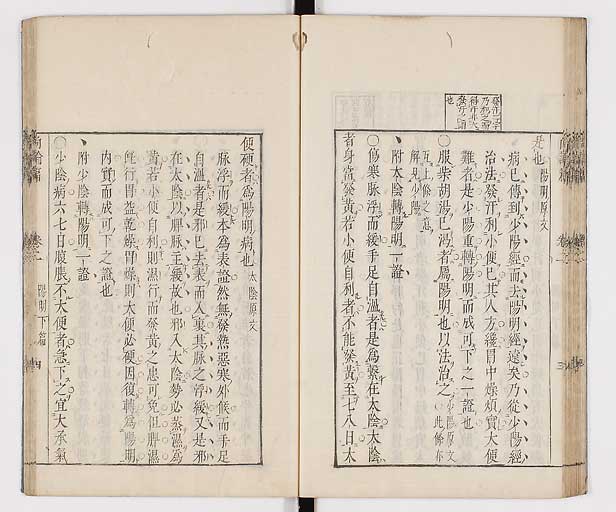 是也 陽明原文
病已傳到少陽經而去陽明經遠矣乃從少陽經
治法發汗利小便已其人方纔胃中燥煩實大便
難者是少陽重轉陽明而成可下之一證也
○服柴胡湯已渴者屬陽明也以法治之 少陽原文 此條亦
互上條之意
解見少陽
附太陰轉陽明一證
○傷寒脉浮而緩手足自溫者是爲繫在太陰太陰
者身當發黃若小便自利者不能發黃至七八日大
便硬者爲陽明病也 太陰原文
脉浮而緩本爲表證然無發熱惡寒外候而手足
自溫者是邪已去表而入裏其脉之浮緩又是邪
在太陰以脾脉主緩故也邪入太陰勢必蒸濕爲
黃若小便自利則濕行而發黃之患可免但脾濕
旣行胃益乾燥胃燥則大便必硬因復轉爲陽明
內實而成可下之證也
附少陰轉陽明一證
○少陰病六七日腹脹不大便者急下之宜大承氣
尚論篇 卷二 陽明下篇 四